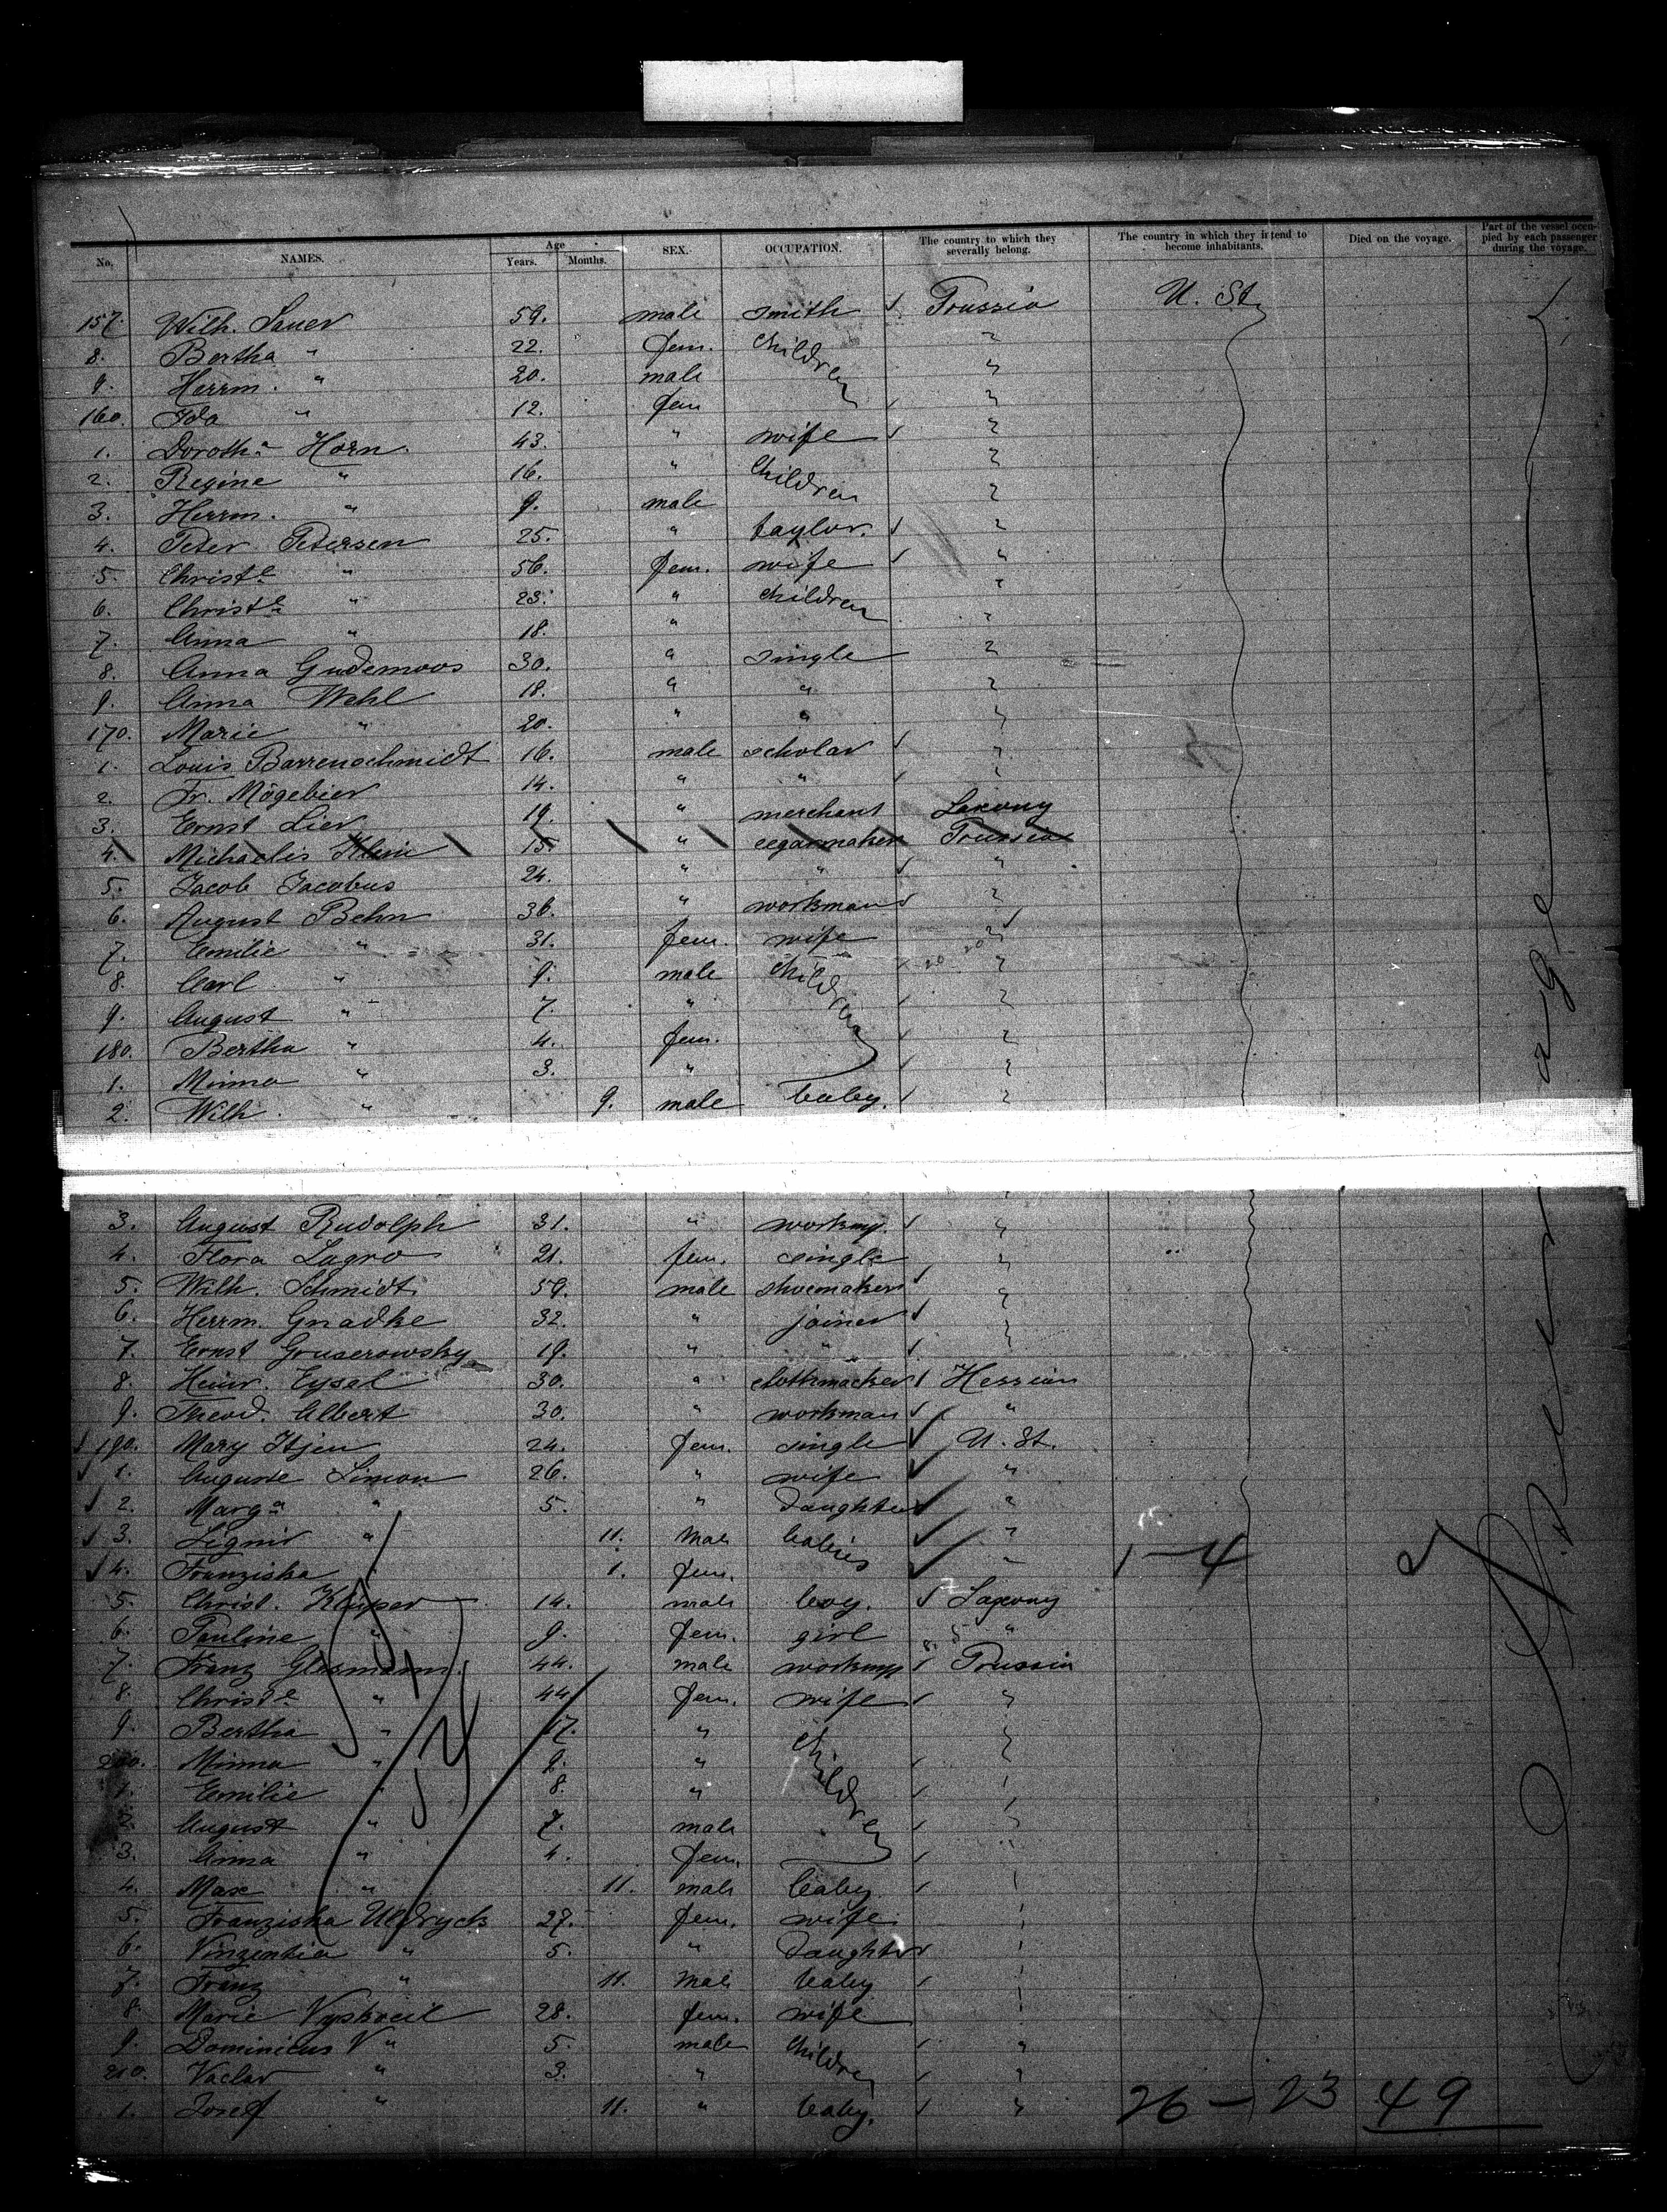 No. NAMES. Age Years. Months. SEX. OCCUPATION. The country to which they severally belong. The country in which they intend to become inhabitants. Died on the voyage. Part of the vessel occupied by each passenger during the voyage.
157. Wilh. Sauer 59. male smith Prussia U. St.
8. Bertha " 22. fem. children "
9. Herrm. " 20. male "
160. Ida " 12. fem "
1. Doroth.a Horn 43. " wife "
2. Regine " 16. " children "
3. Herrm. " 9. male "
4. Peter Petersen 25. " taylor. "
5. Christ.e " 56. fem. wife "
6. Christ.e " 23. " children "
7. Anna " 18. " "
8. Anna Gudemoos 30. " single "
9. Anna Wehl 18. " " "
170. Marie " 20. " " "
1. Louis Barrenschmidt 16. male scholar "
2. Fr. Mögebier 14. " " "
3. Ernst Lier 19. " merchant Saxony
4. Michaelis Klein 15. " cegarmaker Prussia
5. Jacob Jacobus 24. " " "
6. August Behn 36. " workman "
7. Emilie " 31. fem. wife "
8. Carl " 9. male children "
9. August " 7. " "
180. Bertha " 4. fem. "
1. Minna " 3. " "
2. Wilh. " 9. male baby. "
3. August Rudolph 31. " workm. "
4. Flora Lagro 21. fem. single "
5. Wilh. Schmidt 59. male shoemaker "
6. Herrm. Gnadke 32. " joiner "
7. Ernst Gruserowsky 19. " " "
8. Heinr. Eysel 30. " clothmacker Hessian
9. Theod. Albert 30. " workman "
190. Mary Itjen 24. fem. single U. St.
1. Auguste Simon 26. " wife "
2. Marg.a " 5. " daughter "
3. " 11. male babies "
4. Franziska " 1. fem. " 1-4
5. Christ. 14. male boy. Saxony
6. Pauline " 9. fem. girl "
7. Franz Glasmann. 44. male workm. Prussia
8. Christ.e " 44 fem. wife "
9. Bertha " 17. " children "
200. Minna " 9. " "
1. Emilie " 8. " "
2. August " 7. male "
3. Anna " 4. fem. "
4. Max " 11. male baby "
5. Franziska 27. fem. wife "
6. Vinzentia " 5. " daughter "
7. Franz " 11. male baby "
8. Marie Vyskocil 28. fem. wife "
9. Dominicus V " 5. male children "
210. Vaclav " 3. " "
1. Josef " 11. " baby. "
26 - 23 49